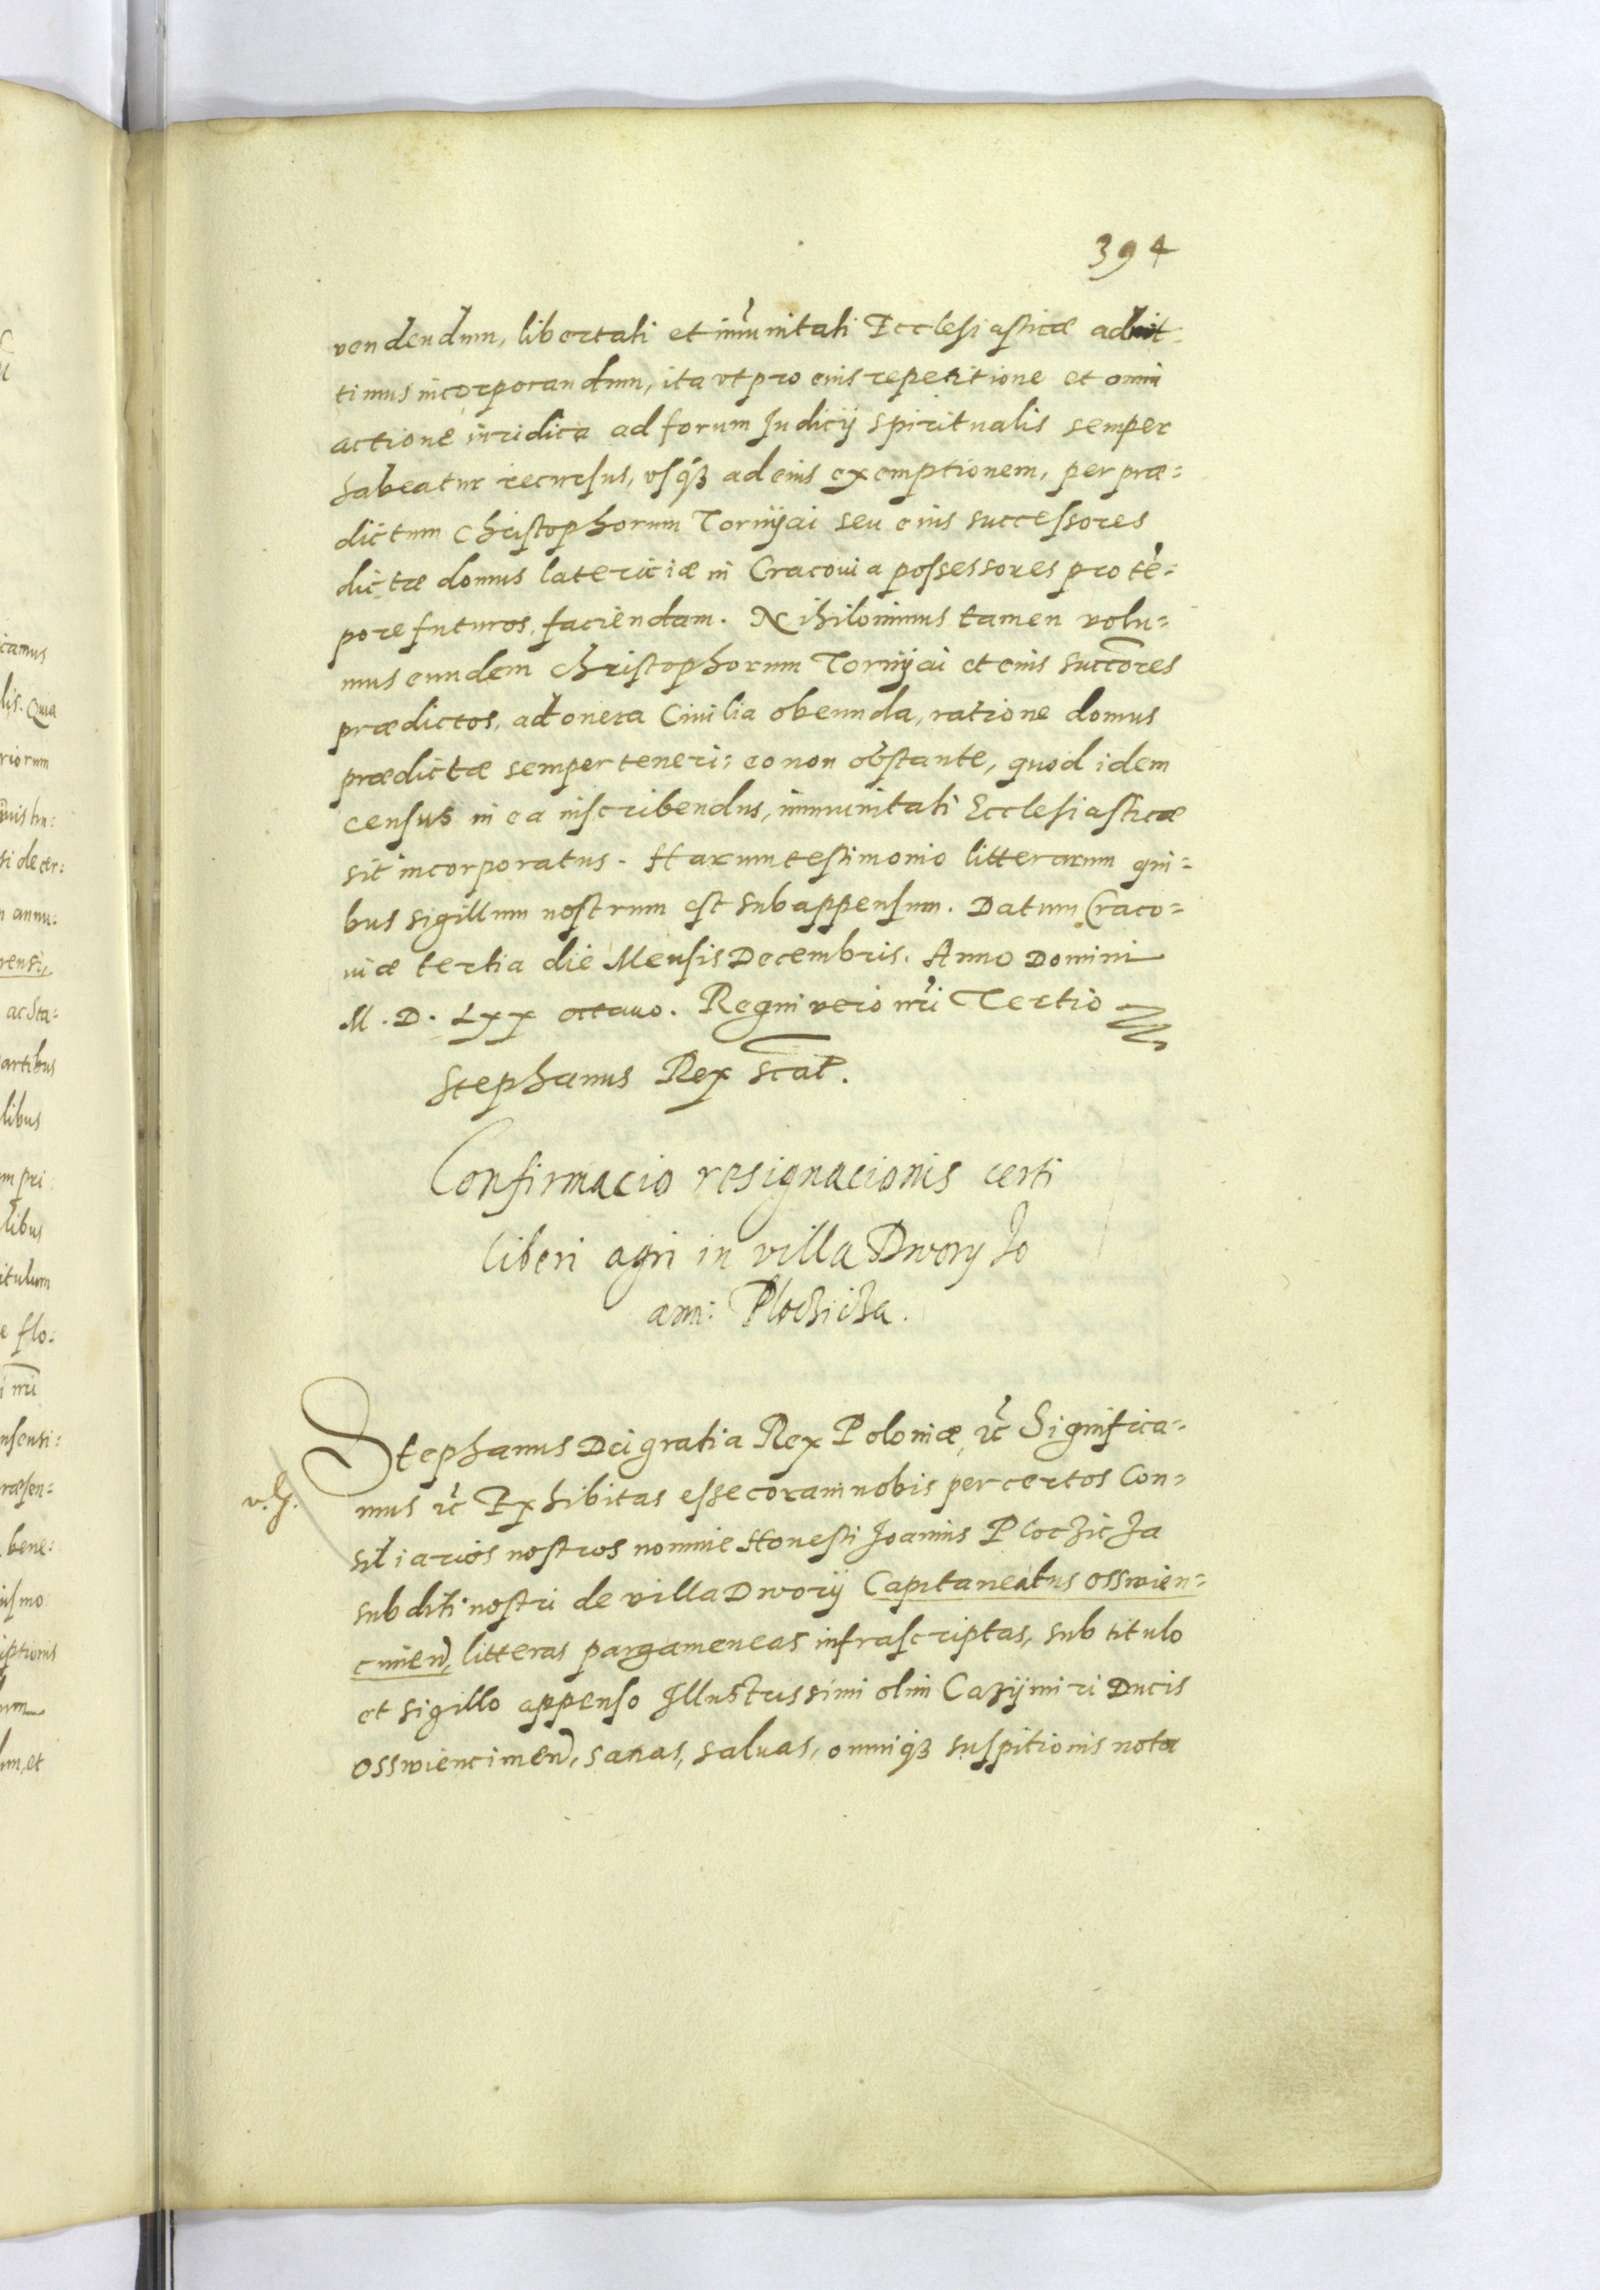 394
vendendum, libertati et im̃unitati Ecclesiasticæ admit-
timus incorporandum, ita vt pro eius repetitione et omni
actione iuridica ad forum Judicij spiritualis semper
habeatur recursus, vsq́ȝ ad eius exemptionem, per præ=
dictum Christophorum Tornijai seu eius successores
dictæ domus latericiæ in Cracouia possessores pro tē=
pore futuros, faciendam. Nihilominus tamen volu=
mus eundem Christophorum Tornijai et eius succ̃ores
prædictos, ad onera Ciuilia obeunda, ratione domus
prædictæ semper teneri: eo non obstante, quod idem
census in ea inscribendus, immunitati Ecclesiasticæ
sit incorporatus. Harum testimonio litterarum qui=
bus sigillum nostrum est subappensum. Datum Craco=
uiæ tertia die Mensis Decembris. Anno Domini
M. D. Lxx octauo. Regni vero nr̃i Tertio
Stephanus Rex sc̃at.
Confirmacio resignacionis certi
liberi agri in villa Dwory Jo
ann: Plocȝicȝa.
Stephanus Dei gratia Rex Poloniæ, ĩc Significa=
v. J.
mus ĩc Exhibitas esse coram nobis per certos Con=
siliarios nostros nomine Honesti Joannis Plocȝicȝa
subditi nostri de villa Dworij Capitaneatus osswien=
cimen̄, litteras pargameneas infrascriptas, sub titulo
et sigillo appenso Illustrissimi olim Cazijmiri Ducis
osswiencimen̄, sanas, saluas, omniq́ȝ suspitionis nota